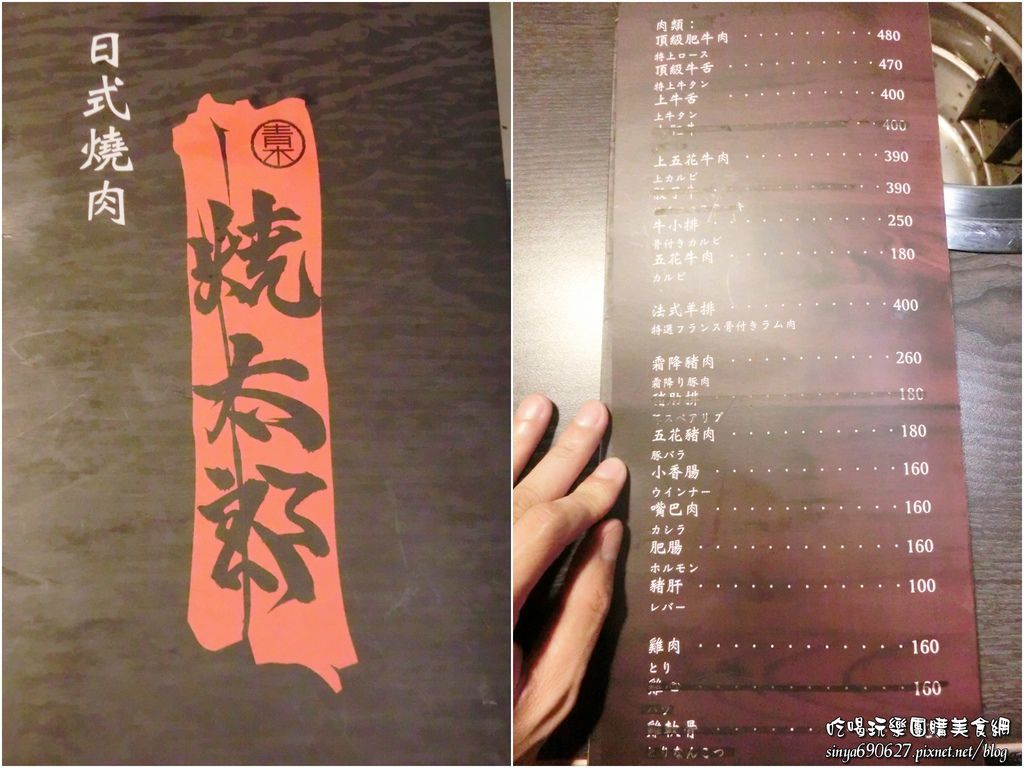 日式燒肉
青木
燒太郎
肉類：
頂級肥牛肉 480
特上ロース
頂級牛舌 470
特上牛タン
上牛舌 400
上牛タン
400
上五花牛肉 390
上カルビ
390
牛小排 250
骨付きカルビ
五花牛肉 180
カルビ
法式羊排 400
特選フランス骨付きラム肉
霜降豬肉 260
霜降り豚肉
豬肋排 180
スペアリブ
五花豬肉 180
豚バラ
小香腸 160
ウインナー
嘴巴肉 160
カシラ
肥腸 160
ホルモン
豬肝 100
レバー
雞肉 160
とり
雞 160
雞軟骨
とりなんこつ
吃喝玩樂團購美食網
sinya690627.pixnet.net/blog